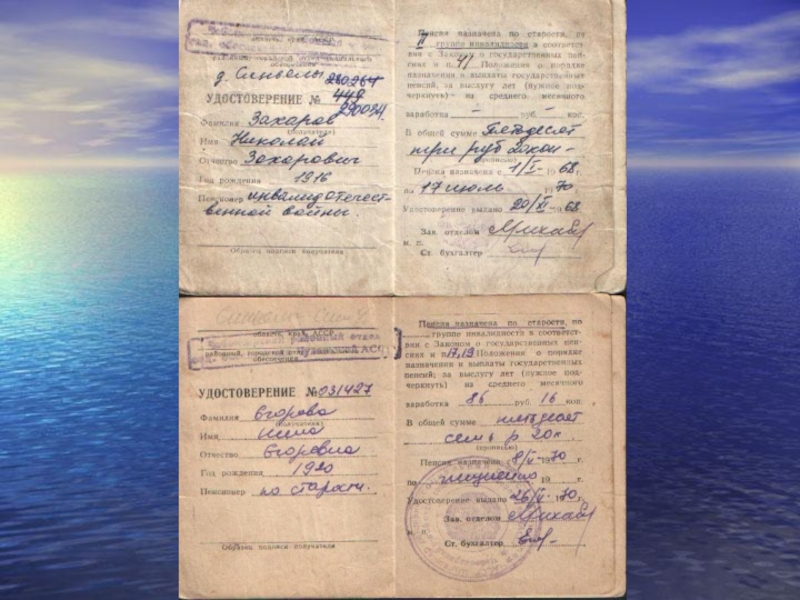 д. Синъялы
280264
УДОСТОВЕРЕНИЕ № 449
290034
Фамилия Захаров
(получателя)
Имя Николай
Отчество Захарович
Год рождения 1916
Пенсионер инвалид отечест-
венной войны.
Образец подписи получателя
Пенсия назначена по старости, по
II группе инвалидности в соответст-
вии с Законом о государственных пен-
сиях и п. 41 Положения о порядке
назначения и выплаты государственных
пенсий, за выслугу лет (нужное под-
черкнуть) из среднего месячного
заработка — руб. — коп.
В общей сумме Пятьдесят
три руб
(прописью)
Пенсия назначена с 1/V- 1968 г.
по 17 июль 1970 г.
Удостоверение выдано 20/XI- 1968
Зав. отделом
м. п.
Ст. бухгалтер
область, край, АССР
районный отдел
Чувашской АССР
обеспечения
УДОСТОВЕРЕНИЕ № 031427
Фамилия Егорова
(получателя)
Имя Нина
Отчество Егоровна
Год рождения 1920
Пенсионер по старости.
Образец подписи получателя
Пенсия назначена по старости, по
группе инвалидности в соответст-
вии с Законом о государственных пен-
сиях и п. 17,19 Положения о порядке
назначения и выплаты государственных
пенсий; за выслугу лет (нужное под-
черкнуть) из среднего месячного
заработка 86 руб. 16 коп.
В общей сумме пятьдесят
семь р 20к.
(прописью)
Пенсия назначена с 8/V- 1970 г.
по 19 г.
Удостоверение выдано 26/V- 1970 г.
Зав. отделом
м. п.
Ст. бухгалтер